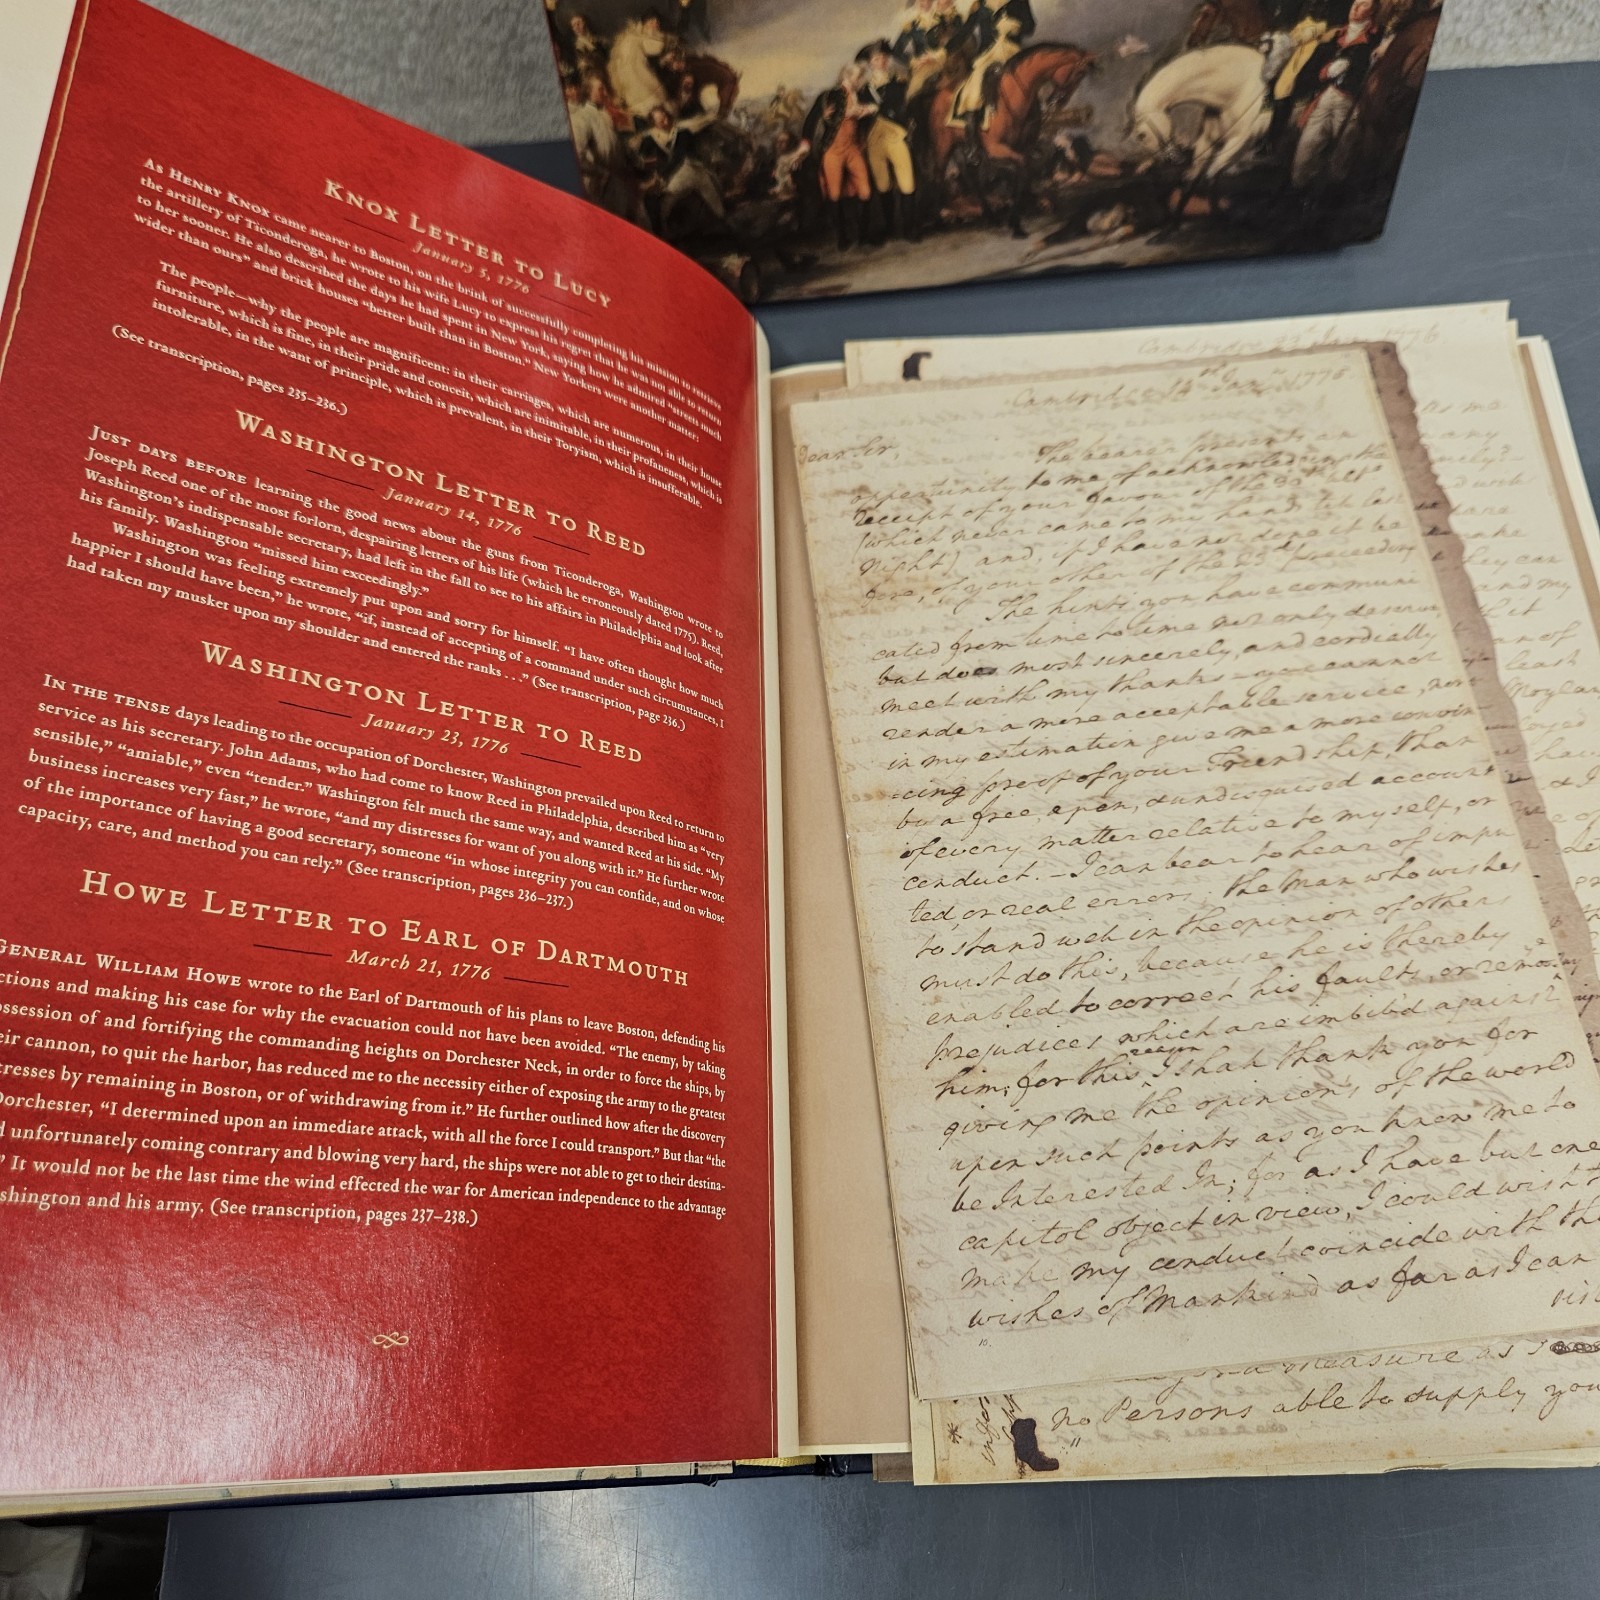 Knox Letter to Lucy
January 5, 1776
As Henry Knox came nearer to Boston, on the brink of successfully completing his mission to retrieve
the artillery of Ticonderoga, he wrote to his wife Lucy to express his regret that he was not able to return
to her sooner. He also described the days he had spent in New York, saying how he admired "streets much
wider than ours" and brick houses "better built than in Boston." New Yorkers were another matter:
The people—why the people are magnificent: in their carriages, which are numerous, in their house
furniture, which is fine, in their pride and conceit, which are inimitable, in their profaneness, which is
intolerable, in the want of principle, which is prevalent, in their Toryism, which is insufferable.
(See transcription, pages 235–236.)
Washington Letter to Reed
January 14, 1776
Just days before learning the good news about the guns from Ticonderoga, Washington wrote to
Joseph Reed one of the most forlorn, despairing letters of his life (which he erroneously dated 1775). Reed,
Washington's indispensable secretary, had left in the fall to see to his affairs in Philadelphia and look after
his family. Washington "missed him exceedingly."
Washington was feeling extremely put upon and sorry for himself. "I have often thought how much
happier I should have been," he wrote, "if, instead of accepting of a command under such circumstances, I
had taken my musket upon my shoulder and entered the ranks . . ." (See transcription, page 236.)
Washington Letter to Reed
January 23, 1776
In the tense days leading to the occupation of Dorchester, Washington prevailed upon Reed to return to
service as his secretary. John Adams, who had come to know Reed in Philadelphia, described him as "very
sensible," "amiable," even "tender." Washington felt much the same way, and wanted Reed at his side. "My
business increases very fast," he wrote, "and my distresses for want of you along with it." He further wrote
of the importance of having a good secretary, someone "in whose integrity you can confide, and on whose
capacity, care, and method you can rely." (See transcription, pages 236–237.)
Howe Letter to Earl of Dartmouth
March 21, 1776
General William Howe wrote to the Earl of Dartmouth of his plans to leave Boston, defending his
ctions and making his case for why the evacuation could not have been avoided. "The enemy, by taking
ossession of and fortifying the commanding heights on Dorchester Neck, in order to force the ships, by
eir cannon, to quit the harbor, has reduced me to the necessity either of exposing the army to the greatest
tresses by remaining in Boston, or of withdrawing from it." He further outlined how after the discovery
Dorchester, "I determined upon an immediate attack, with all the force I could transport." But that "the
d unfortunately coming contrary and blowing very hard, the ships were not able to get to their destina-
" It would not be the last time the wind effected the war for American independence to the advantage
shington and his army. (See transcription, pages 237–238.)
Cambridge 14th Jany 1775
Dear Sir,
The bearer presents an
opportunity to me of acknowledging the
receipt of your favour of the 30th ulto
(which never came to my hands till last
night) and, if I have not done it be
fore, of your other of the 23d preceeding
The hints you have communi
cated from time to time not only deserve
but does most sincerely, and cordially
meet with my thanks – you cannot
render a more acceptable service, nor
in my estimation give me a more convin
-cing proof of your Friendship, than
by a free, open, & undisguised account
of every matter relative to myself, or
conduct. – I can bear to hear of impu
ted, or real errors; the Man who wishes
to stand well in the opinion of others
must do this, because he is thereby
enabled to correct his faults, or remove
prejudices which are imbib'd against
him; for this reason I shall thank you for
giving me the opinions of the world
upon such points as you know me to
be Interested In; for as I have but one
capitol object in view, I could wish to
make my conduct coincide with the
wishes of Mankind as far as I can
10.
measure as I
no Persons able to supply you